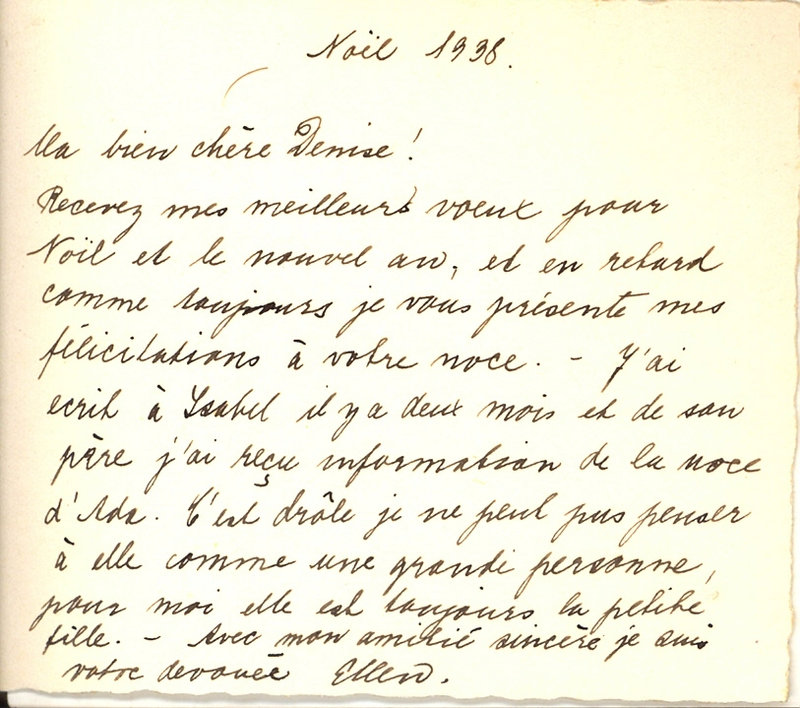 Noïl 1938.
Ma bien chère Denise!
Recevez mes meilleurs voeux pour
Noïl et le nouvel an, et en retard
comme toujours je vous présente mes
félicitations à votre noce. – J'ai
ecrit à Isabel il y a deux mois et de son
père j'ai reçu information de la noce
d'Ada. C'est drôle je ne peut pas penser
à elle comme une grande personne,
pour moi elle est toujours la petite
fille. – Avec mon amitié sincère je suis
votre devouée Ellen.